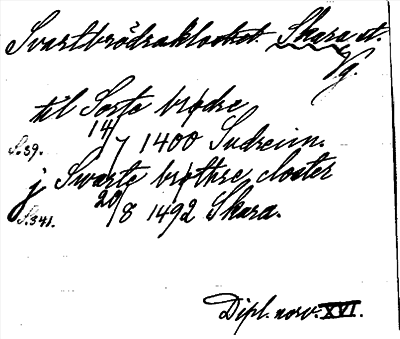 Svartbrödraklostret. Skara st.
Vg.
til Sorte brødre
S.39. 14/7 1400 Sudreim.
j Swarte brøthre closter
S.341. 20/8 1492 Skara.
Dipl. norv. XVI.